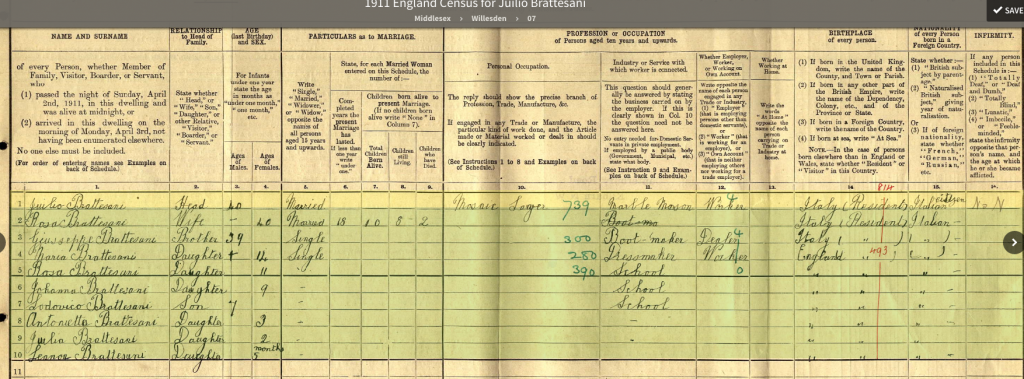 1911 England Census for Juilio Brattesani
Middlesex > Willesden > 07
SAVE
NAME AND SURNAME
of every Person, whether Member of
Family, Visitor, Boarder, or Servant,
who
(1) passed the night of Sunday, April
2nd, 1911, in this dwelling and
was alive at midnight, or
(2) arrived in this dwelling on the
morning of Monday, April 3rd, not
having been enumerated elsewhere.
No one else must be included.
(For order of entering names see Examples on
back of Schedule.)
RELATIONSHIP
to Head of
Family.
State whether
"Head," or
"Wife," "Son,"
"Daughter," or
other Relative,
"Visitor,"
"Boarder," or
"Servant."
AGE
(last Birthday)
and SEX.
For Infants
under one year
state the age
in months as
"under one month,"
"one month,"
etc.
Ages of Males.
Ages of Females.
PARTICULARS as to MARRIAGE.
Write
"Single,"
"Married,"
"Widower,"
or "Widow,"
opposite the
names of
all persons
aged 15 years
and upwards.
State, for each Married Woman
entered on this Schedule, the
number of:—
Completed years the present Marriage has lasted. If less than one year write "under one."
Children born alive to
present Marriage.
(If no children born
alive write "None" in
Column 7).
Total Children Born Alive.
Children still Living.
Children who have Died.
PROFESSION or OCCUPATION
of Persons aged ten years and upwards.
Personal Occupation.
The reply should show the precise branch of
Profession, Trade, Manufacture, &c.
If engaged in any Trade or Manufacture, the
particular kind of work done, and the Article
made or Material worked or dealt in should
be clearly indicated.
(See Instructions 1 to 8 and Examples on back
of Schedule.)
Industry or Service with
which worker is connected.
This question should gener-
ally be answered by stating
the business carried on by
the employer. If this is
clearly shown in Col. 10
the question need not be
answered here.
No entry needed for Domestic Ser-
vants in private employment.
If employed by a public body
(Government, Municipal, etc.)
state what body.
(See Instruction 9 and Exam-
ples on back of Schedule.)
Whether Employer,
Worker,
or Working on
Own Account.
Whether
Working at
Home.
BIRTHPLACE
of every person.
(1) If born in the United King-
dom, write the name of the
County, and Town or Parish.
(2) If born in any other part of
the British Empire, write the
name of the Dependency,
Colony, etc., and of the
Province or State.
(3) If born in a Foreign Country,
write the name of the Country.
(4) If born at sea, write "At Sea."
NOTE.—In the case of persons
born elsewhere than in England or
Wales, state whether "Resident" or
"Visitor" in this Country.
NATIONALITY
of every Person
born in a
Foreign Country.
State whether:—
(1) "British
subject by
parentage."
(2) "Naturalised
British
subject," giving
year of natu-
ralisation.
Or
(3) If of foreign
nationality,
state whether
"French,"
"German,"
"Russian,"
etc.
INFIRMITY.
1. 2. 3. 4. 5. 6. 7. 8. 9. 10. 11. 12. 13. 14. 15.
1 Juilio Brattesani Head 40 Married 739 Marble Mason Worker Italy (Resident) Italian
2 Rosa Brattesani Wife - 40 Married 18 10 8 2 Italy (Resident) Italian
3 Guisseppe Brattesani Brother 39 Single 300 Boot maker Italy
4 Maria Brattesani Daughter 14 Single 280 Dressmaker Worker England 493
5 Rosa Brattesani Daughter 11 390 School 0
6 Johanna Brattesani Daughter 9 School
7 Lodovico Brattesani Son 7 School
8 Antonietta Brattesani Daughter 3
9 Juilia Brattesani Daughter 2
10 Brattesani Daughter months 5
11